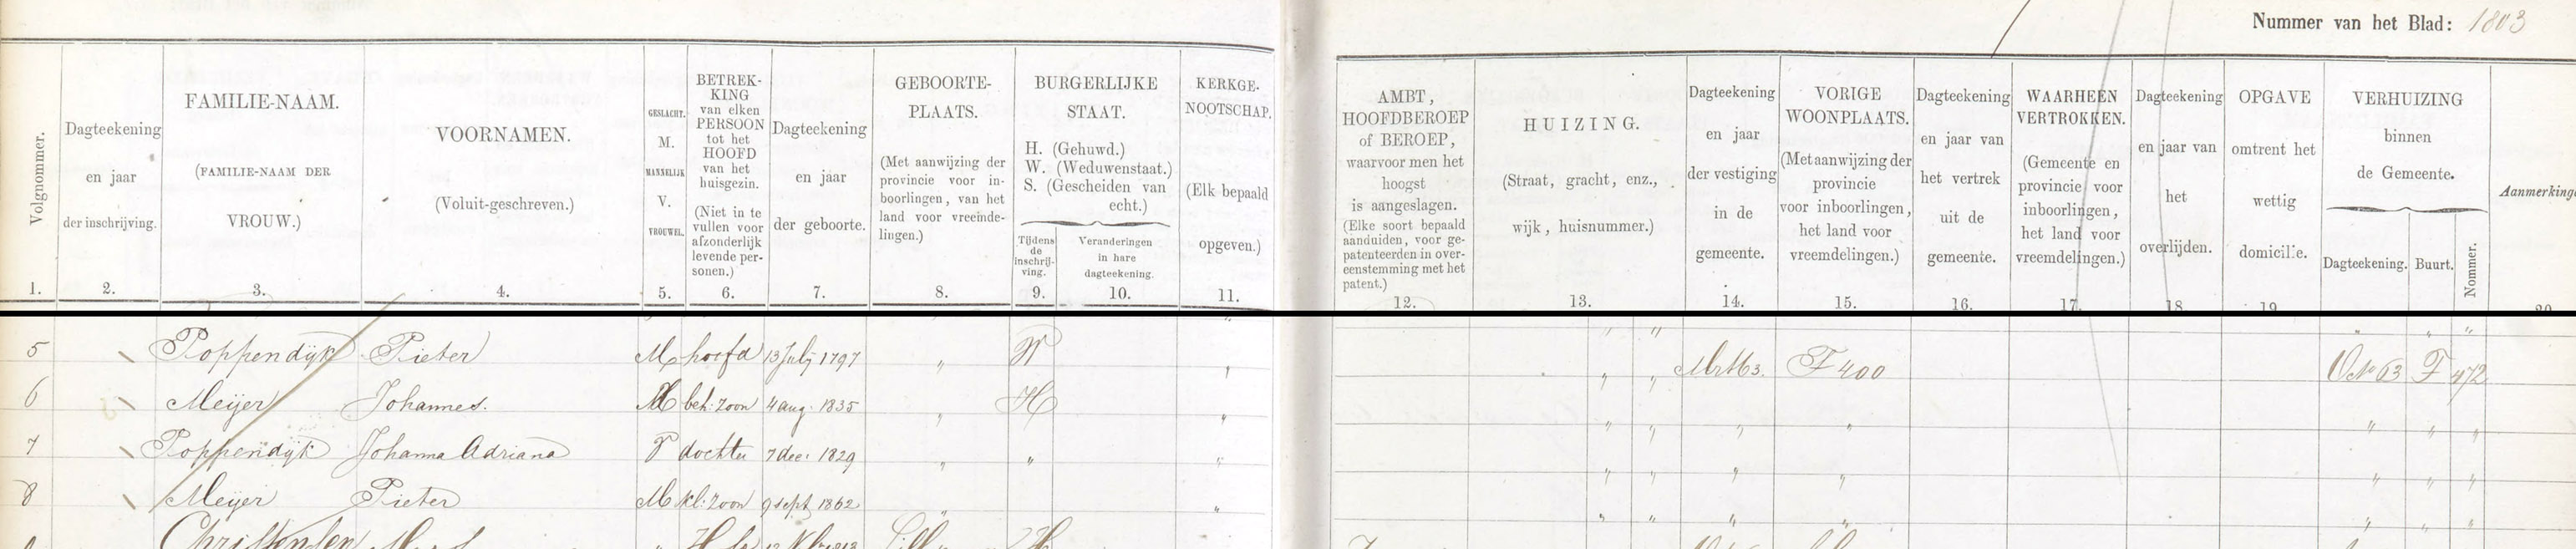 Nummer van het Blad: 1803
Volgnommer.
1.
Dagteekening
en jaar
der inschrijving.
2.
FAMILIE-NAAM.
(FAMILIE-NAAM DER
VROUW.)
3.
VOORNAMEN.
(Voluit-geschreven.)
4.
GESLACHT.
M.
MANNELIJK
V.
VROUWEL.
5.
BETREK-
KING
van elken
PERSOON
tot het
HOOFD
van het
huisgezin.
(Niet in te
vullen voor
afzonderlijk
levende per-
sonen.)
6.
Dagteekening
en jaar
der geboorte.
7.
GEBOORTE-
PLAATS.
(Met aanwijzing der
provincie voor in-
boorlingen, van het
land voor vreemde-
lingen.)
8.
BURGERLIJKE
STAAT.
H. (Gehuwd.)
W. (Weduwenstaat.)
S. (Gescheiden van
echt.)
Tijdens
de
inschrij-
ving.
9.
Veranderingen
in hare
dagteekening.
10.
KERKGE-
NOOTSCHAP.
(Elk bepaald
opgeven.)
11.
AMBT,
HOOFDBEROEP
of BEROEP,
waarvoor men het
hoogst
is aangeslagen.
(Elke soort bepaald
aanduiden, voor ge-
patenteerden in over-
eenstemming met het
patent.)
12.
HUIZING.
(Straat, gracht, enz.,
wijk, huisnummer.)
13.
Dagteekening
en jaar
der vestiging
in de
gemeente.
14.
VORIGE
WOONPLAATS.
(Met aanwijzing der
provincie
voor inboorlingen,
het land voor
vreemdelingen.)
15.
Dagteekening
en jaar van
het vertrek
uit de
gemeente.
16.
WAARHEEN
VERTROKKEN.
(Gemeente en
provincie voor
inboorlingen,
het land voor
vreemdelingen.)
17.
Dagteekening
en jaar van
het
overlijden.
18
OPGAVE
omtrent het
wettig
domicilie.
19
VERHUIZING
binnen
de Gemeente.
Dagteekening.
Buurt.
Nommer.
Aanmerking
20
5 Poppendijk Pieter M hoofd 13 July 1797 " W " " " Mrt 63. F 400 Oct 63 F 472
6 Meijer Johannes. M beh: zoon 4 aug: 1835 " H " " " " " " " "
7 Poppendijk Johanna Adriana V dochter 7 dec: 1829 " " " " " " " " " "
8 Meijer Pieter M kl: zoon 9 sept 1862 " " " " " " " " "
Christensen